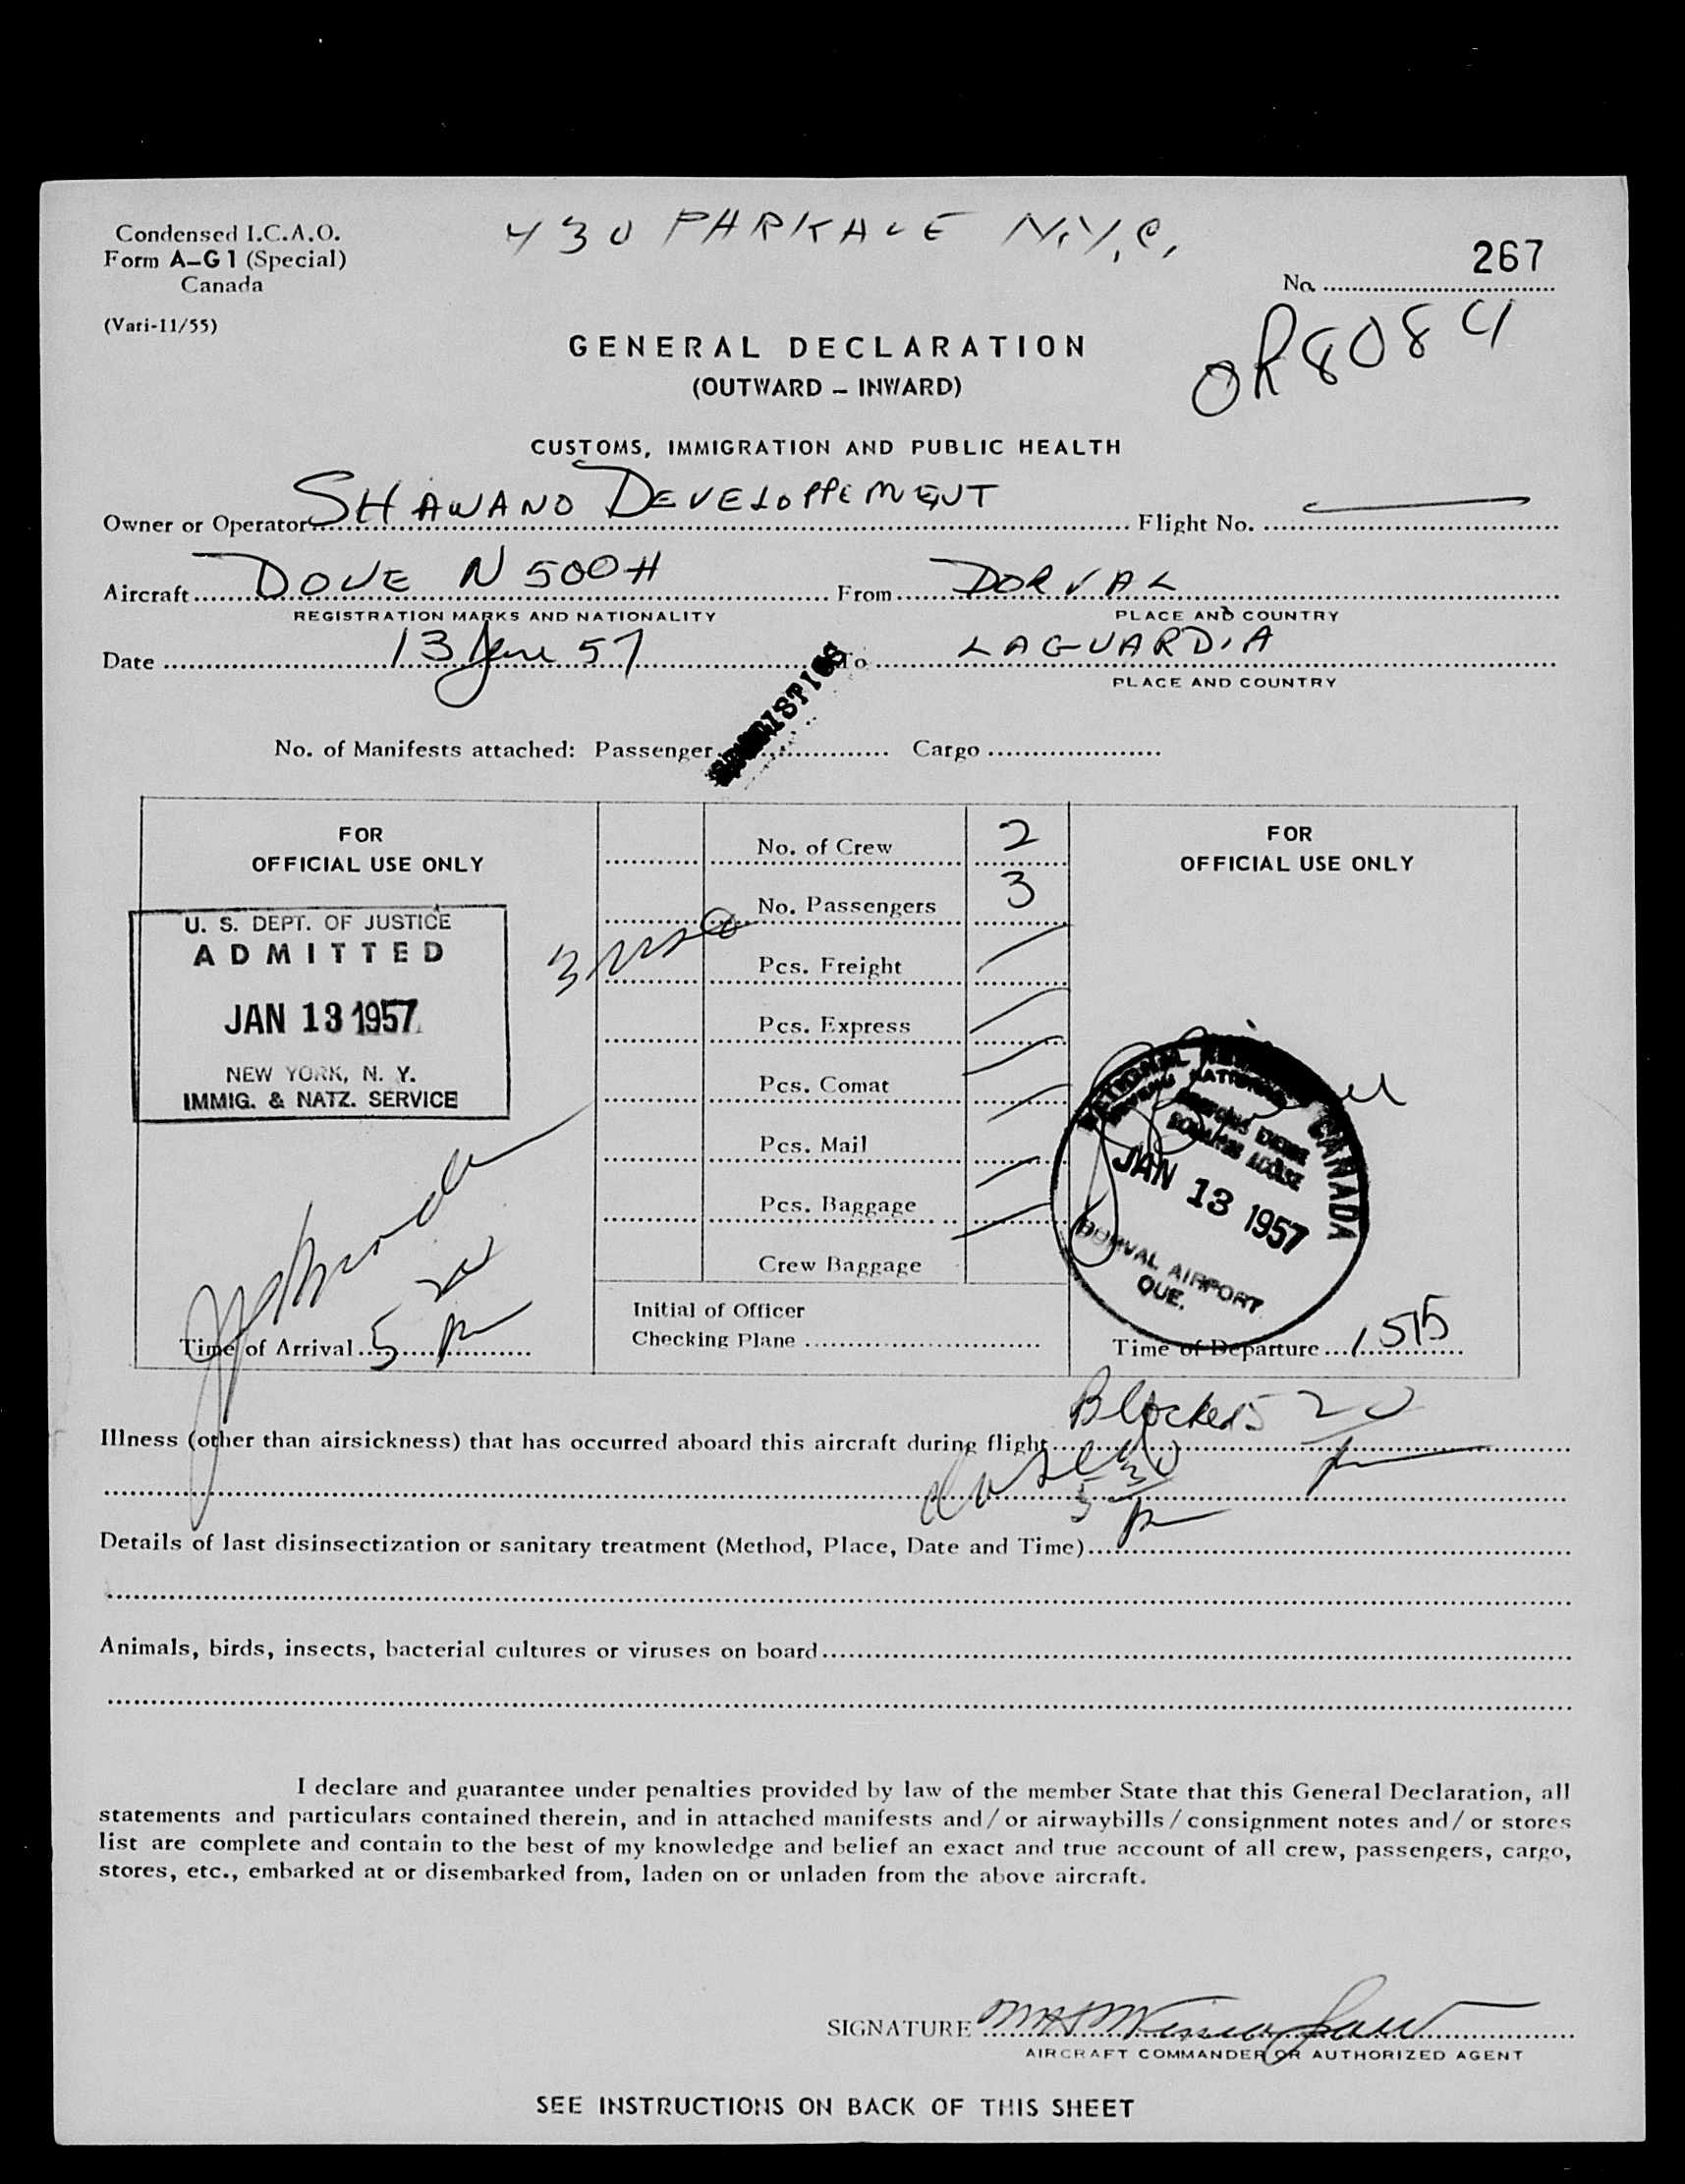 Condensed I.C.A.O.
Form A-G1 (Special)
Canada
(Vari-11/55)
430 PARKAVE N.Y.C.
267
No. ..............................
OR8084
GENERAL DECLARATION
(OUTWARD - INWARD)
CUSTOMS, IMMIGRATION AND PUBLIC HEALTH
Owner or Operator SHAWANO DEVELOPPEMENT Flight No.
Aircraft DOVE N500H From DORVAL
REGISTRATION MARKS AND NATIONALITY PLACE AND COUNTRY
Date 13 Jan 57 To LAGUARDIA
PLACE AND COUNTRY
No. of Manifests attached: Passenger Cargo
FOR
OFFICIAL USE ONLY
U. S. DEPT. OF JUSTICE
ADMITTED
JAN 13 1957
NEW YORK, N. Y.
IMMIG. & NATZ. SERVICE
Time of Arrival 5 20 pm
No. of Crew 2
No. Passengers 3
3 usc
Pcs. Freight
Pcs. Express
Pcs. Comat
Pcs. Mail
Pcs. Baggage
Crew Baggage
Initial of Officer
Checking Plane
FOR
OFFICIAL USE ONLY
NATIONAL CANADA
JAN 13 1957
DORVAL AIRPORT
QUE.
Time of Departure 1515
Blocked 5 20 pm
Illness (other than airsickness) that has occurred aboard this aircraft during flight
5 30 pm
Details of last disinsectization or sanitary treatment (Method, Place, Date and Time)
Animals, birds, insects, bacterial cultures or viruses on board
I declare and guarantee under penalties provided by law of the member State that this General Declaration, all
statements and particulars contained therein, and in attached manifests and/or airwaybills/consignment notes and/or stores
list are complete and contain to the best of my knowledge and belief an exact and true account of all crew, passengers, cargo,
stores, etc., embarked at or disembarked from, laden on or unladen from the above aircraft.
SIGNATURE
AIRCRAFT COMMANDER OR AUTHORIZED AGENT
SEE INSTRUCTIONS ON BACK OF THIS SHEET